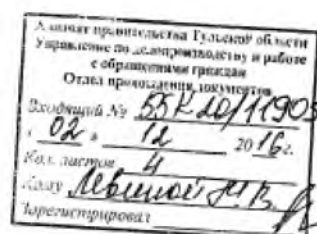 Аппарат правительства Тульской области
Управление по делопроизводству и работе
с обращениями граждан
Отдел прохождения документов
Входящий № 55К-20/11903
« 02 » 12 2016 г.
Кол. листов 4
Кому Левиной М.В.
Зарегистрировал